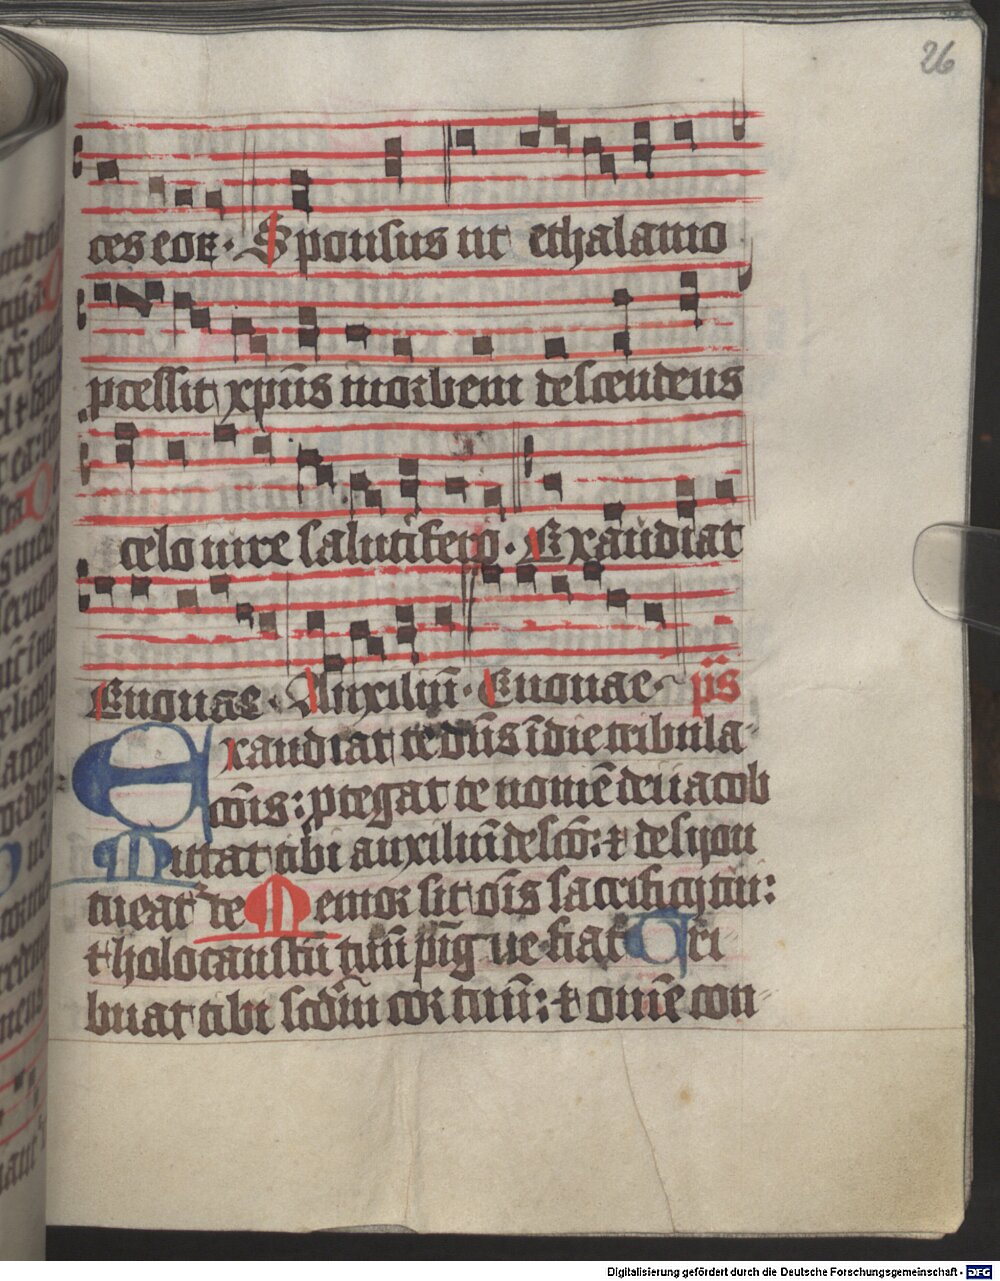 26
ces eoꝝ. Sponsus ut ethalamo
pcessit xpūs inorbem descendens
celo iure salutifero. Exaudiat
Euouae. Auxiliū. Euouae. p̄s
Exaudiat te dn̄s īdie tribula
cōis: ptegat te nomē dei iacob
Mittat tibi auxiliū de scō: ⁊ de syon
tueat᷑ te Memor sit oīs sacrificij tui:
⁊ holocaustū tuū pīgue fiat Tri
buat tibi scd̄m cor tuū: ⁊ omne con
Digitalisierung gefördert durch die Deutsche Forschungsgemeinschaft - DFG